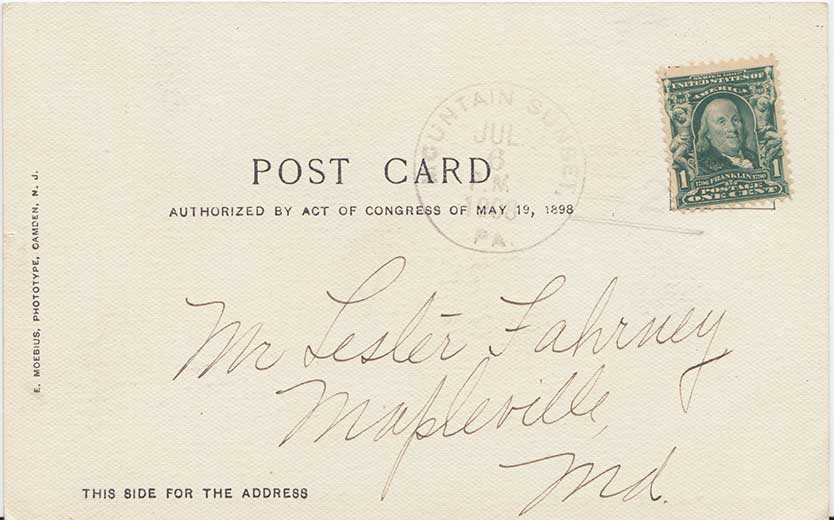 SERIES 1902
UNITED STATES OF
AMERICA
1 1706 FRANKLIN 1790 1
POSTAGE
ONE CENT
MOUNTAIN SUNSET,
JUL
6
P.M.
PA.
POST CARD
AUTHORIZED BY ACT OF CONGRESS OF MAY 19, 1898
E. MOEBIUS, PHOTOTYPE, CAMDEN, N. J.
Mr Lester Fahrney
Mapleville,
Md.
THIS SIDE FOR THE ADDRESS